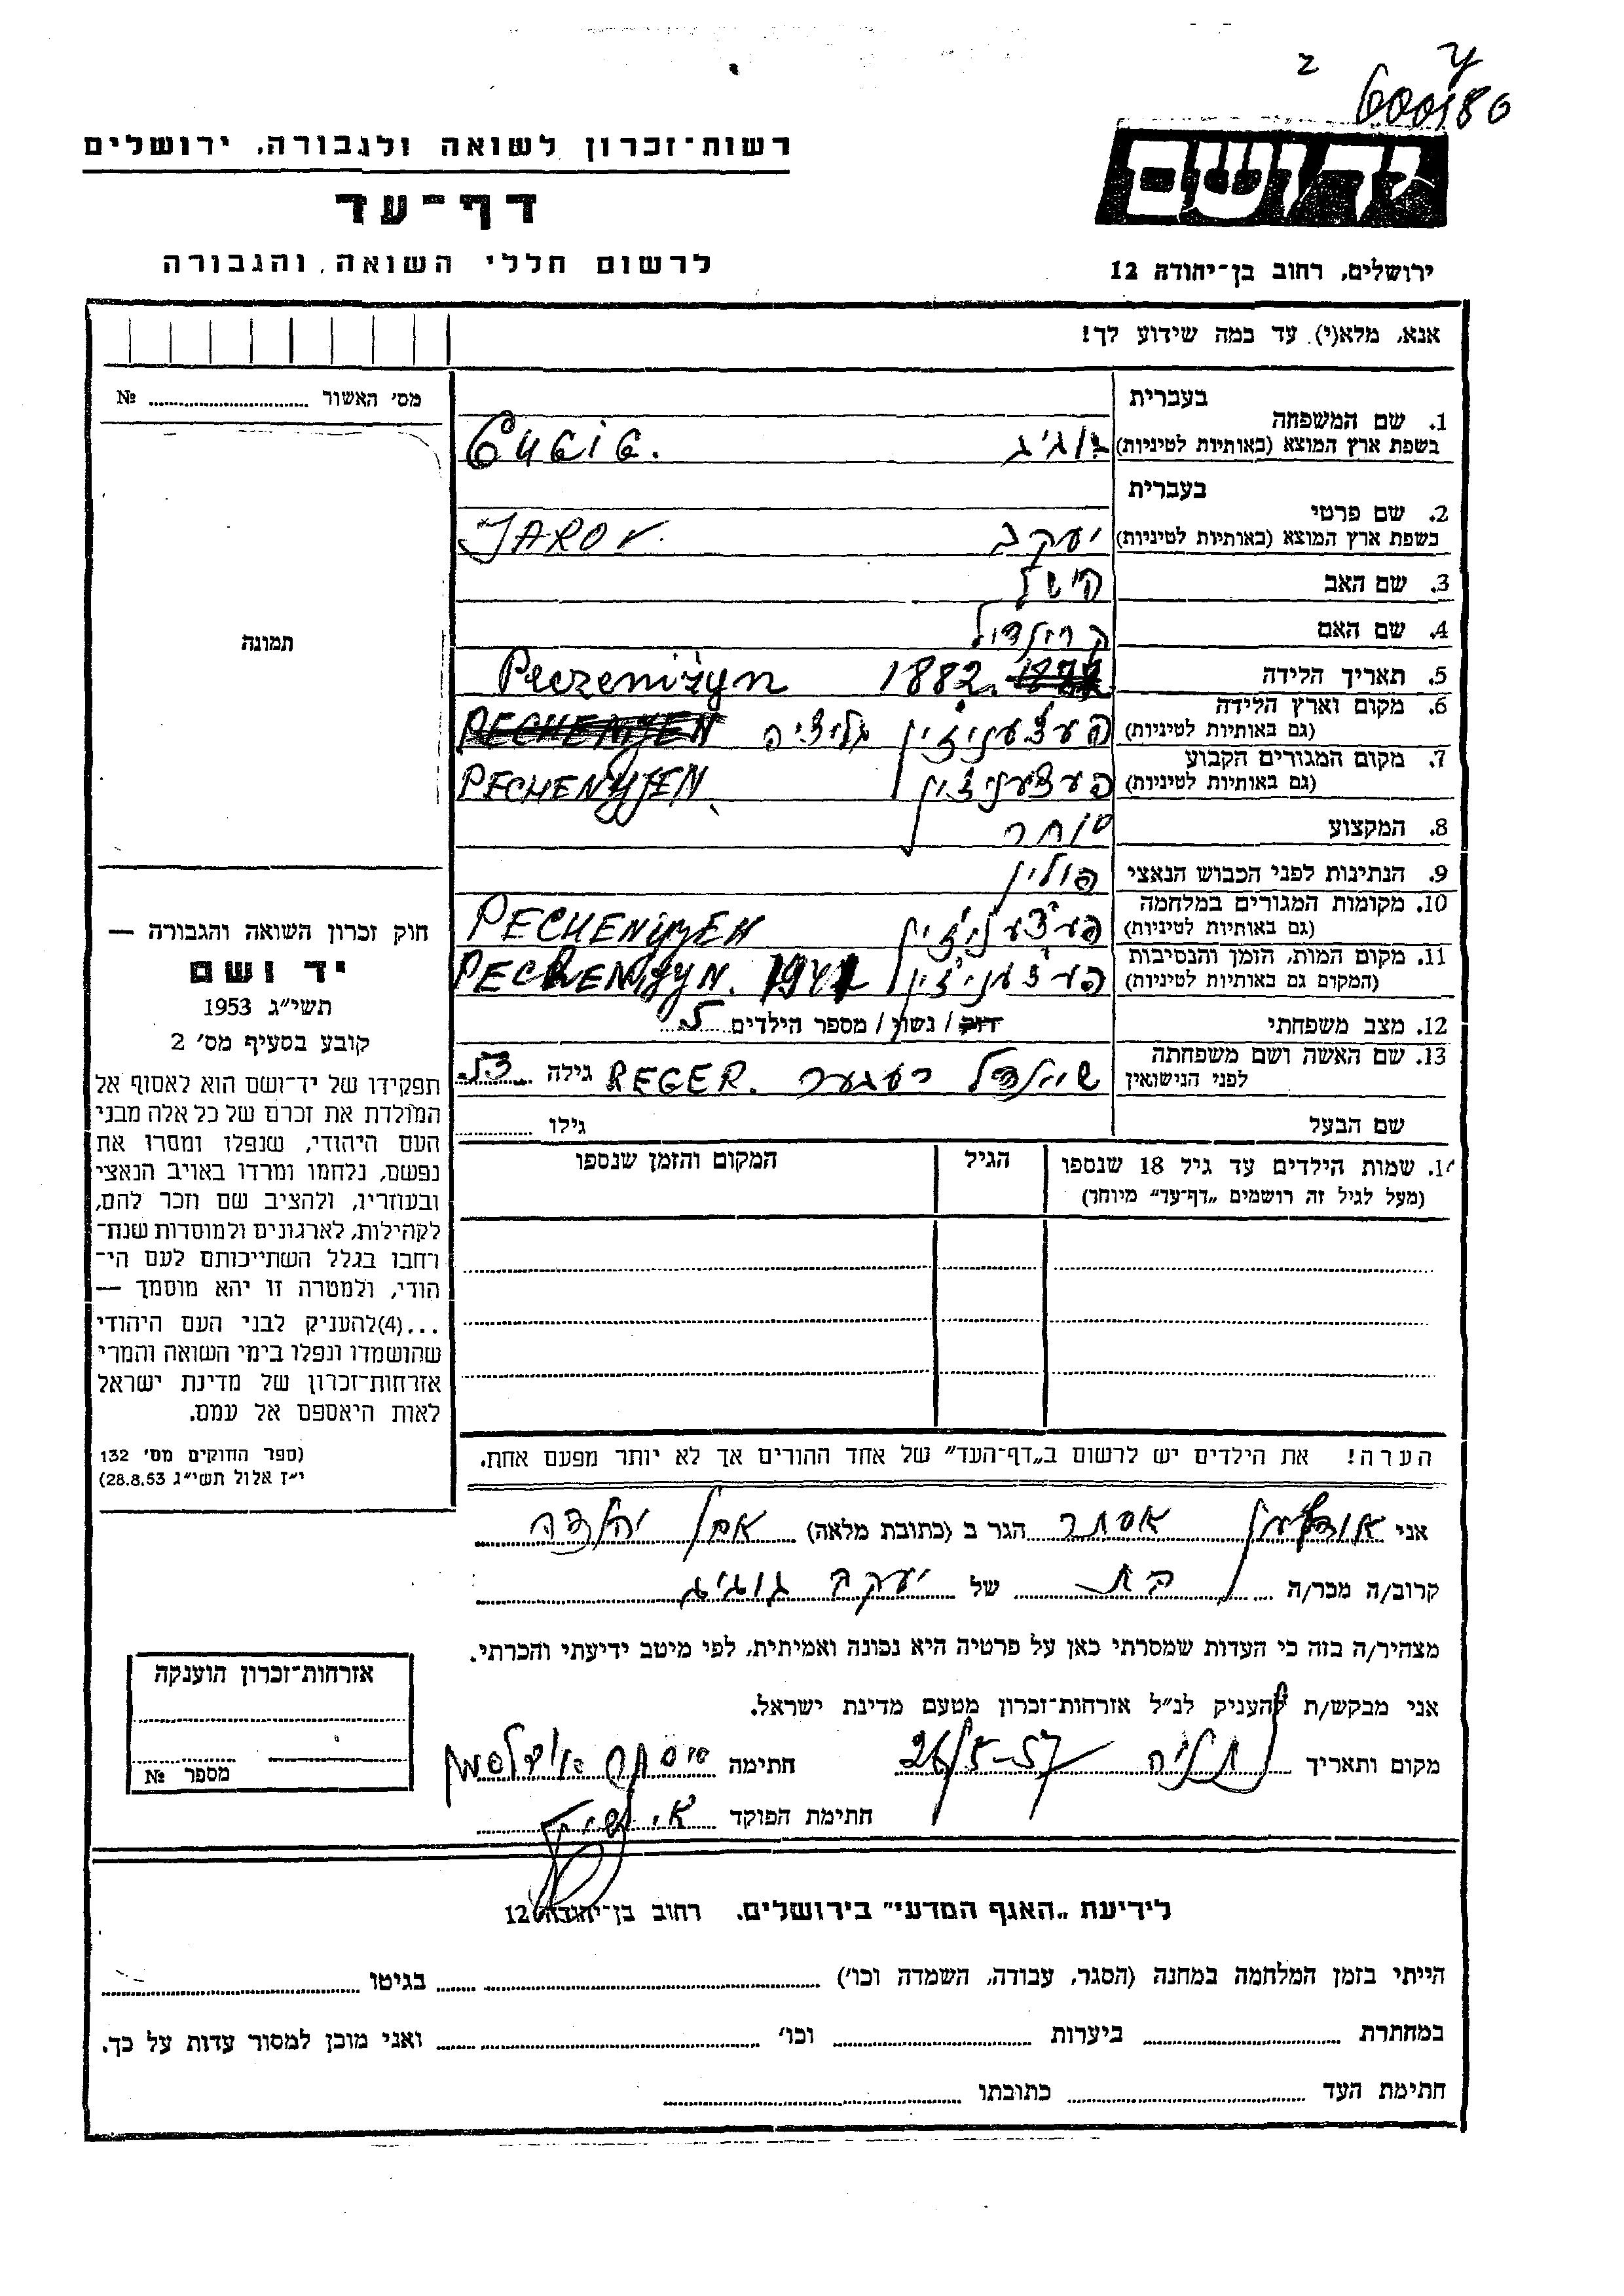 600186
רשות־זכרון לשואה ולגבורה, ירושלים
דף־עד
לרשום חללי השואה והגבורה
ידושם
ירושלים, רחוב בן־יהודה 12
אנא, מלא(י) עד כמה שידוע לך!
מס׳ האשור ........ №
תמונה
1. שם המשפחה
בעברית
בשפת ארץ המוצא (באותיות לטיניות)
גוגיג
2. שם פרטי
בעברית
בשפת ארץ המוצא (באותיות לטיניות)
יעקב
3. שם האב
4. שם האם
5. תאריך הלידה 1882. Peczeniżyn
6. מקום וארץ הלידה
(גם באותיות לטיניות)
פעצעניזין גליציה PECHENYJEN
7. מקום המגורים הקבוע
(גם באותיות לטיניות)
פעצעניזין PECHENYJEN
8. המקצוע סוחר
9. הנתינות לפני הכבוש הנאצי פולין
10. מקומות המגורים במלחמה
(גם באותיות לטיניות)
פעצעניזין
11. מקום המות, הזמן והנסיבות
(המקום גם באותיות לטיניות)
פעצעניזין
12. מצב משפחתי רווק / נשוי / מספר הילדים 5
13. שם האשה ושם משפחתה
לפני הנישואין
שיינדל רעגער REGER. גילה
שם הבעל גילו
14. שמות הילדים עד גיל 18 שנספו
(מעל לגיל זה רושמים „דף־עד" מיוחד)
הגיל
המקום והזמן שנספו
הערה! את הילדים יש לרשום ב„דף־העד" של אחד ההורים אך לא יותר מפעם אחת.
חוק זכרון השואה והגבורה —
יד ושם
תשי״ג 1953
קובע בסעיף מס׳ 2
תפקידו של יד־ושם הוא לאסוף אל
המולדת את זכרם של כל אלה מבני
העם היהודי, שנפלו ומסרו את
נפשם, נלחמו ומרדו באויב הנאצי
ובעוזריו, ולהציב שם וזכר להם,
לקהילות, לארגונים ולמוסדות שנח־
רחבו בגלל השתייכותם לעם הי־
הודי, ולמטרה זו יהא מוסמך —
...(4)להעניק לבני העם היהודי
שהושמדו ונפלו בימי השואה והמרי
אזרחות־זכרון של מדינת ישראל
לאות היאספם אל עמם.
(ספר החוקים מס׳ 132
י״ז אלול תשי״ג 28.8.53)
אני אסתר הגר ב (כתובת מלאה) אבן יהודה
קרוב/ה מכר/ה בת של יעקב גוגיג
מצהיר/ה בזה כי העדות שמסרתי כאן על פרטיה היא נכונה ואמיתית, לפי מיטב ידיעתי והכרתי.
אני מבקש/ת להעניק לנ״ל אזרחות־זכרון מטעם מדינת ישראל.
מקום ותאריך נתניה 26/5-57 חתימה
חתימת הפוקד
אזרחות־זכרון הוענקה
מספר №
לידיעת „האגף המדעי" בירושלים, רחוב בן־יהודה 12
הייתי בזמן המלחמה במחנה (הסגר, עבודה, השמדה וכו׳) בגיטו
במחתרת ביערות וכו׳ ואני מוכן למסור עדות על כך.
חתימת העד כתובתו